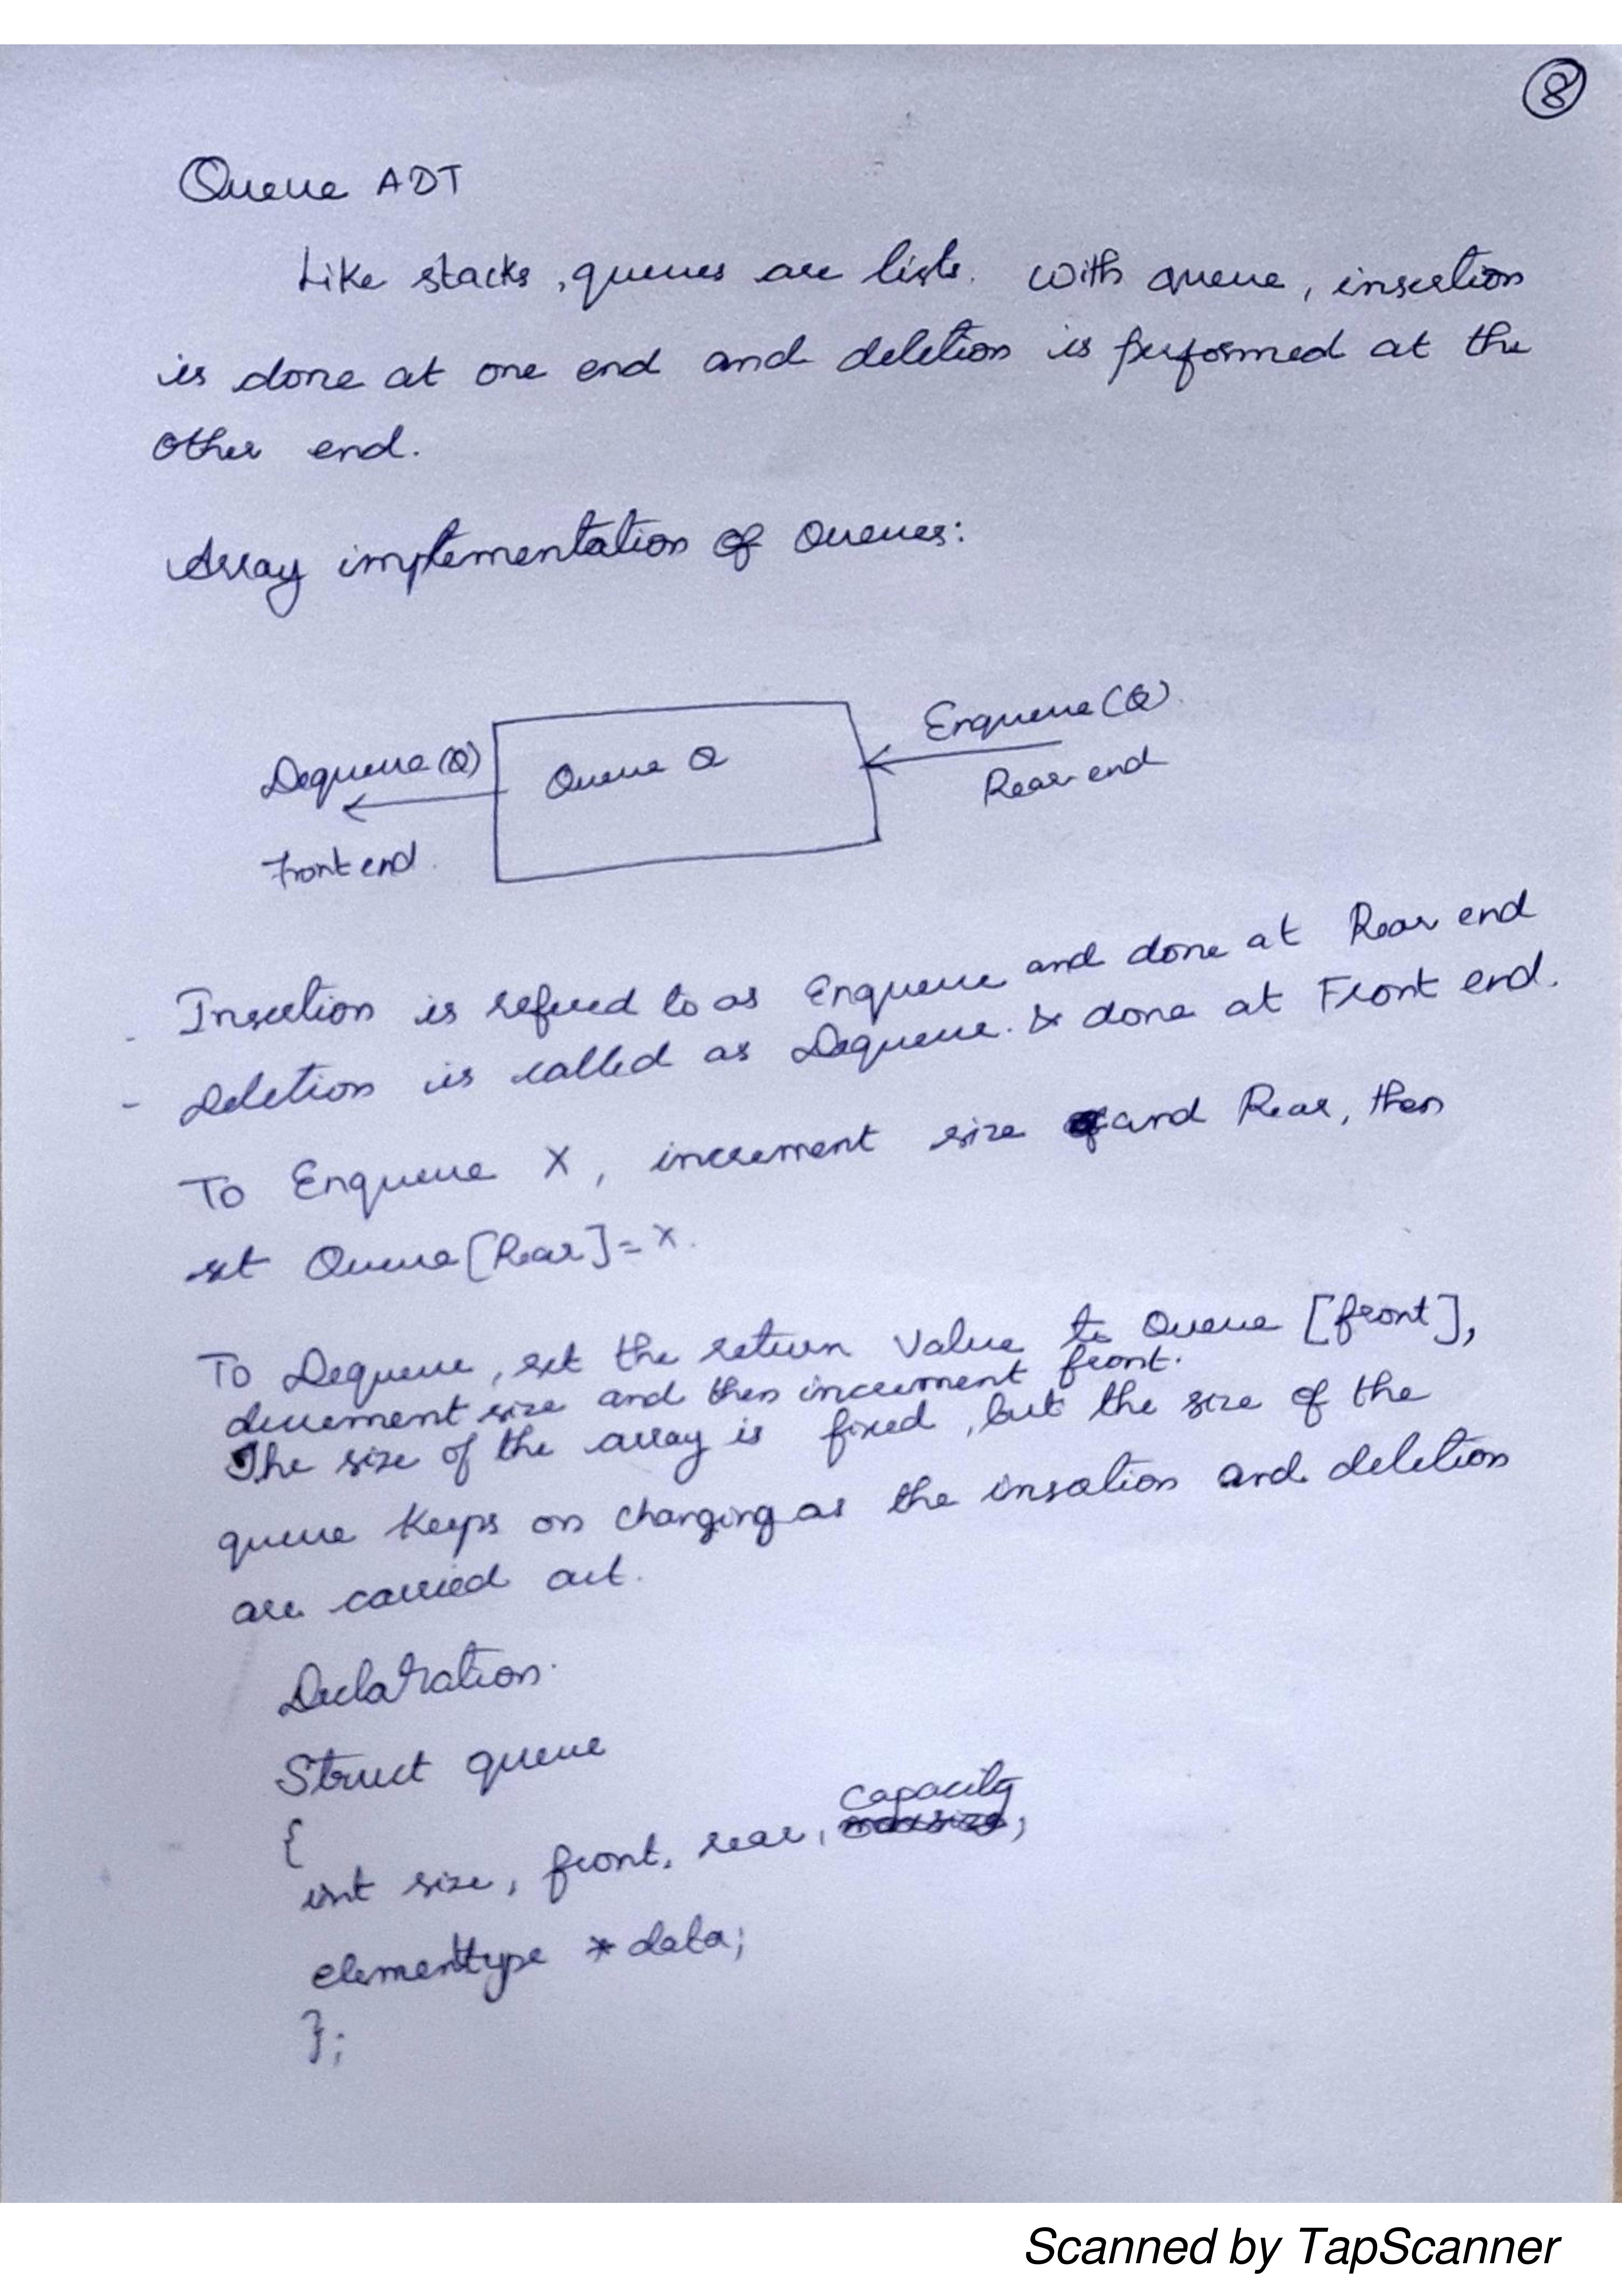 8
Queue ADT
Like stacks, queues are lists. With queue, insertion
is done at one end and deletion is performed at the
other end.
Array implementation of Queues:
Enqueue(Q)
Dequeue(Q)
Queue Q
Rear end
Front end.
- Insertion is refered to as Enqueue and done at Rear end
- Deletion is called as Dequeue. & done at Front end.
To Enqueue X, increment size and Rear, then
set Queue[Rear]=X.
To Dequeue, set the return Value to Queue [front],
decrement size and then increment front.
The size of the array is fixed, but the size of the
queue keeps on changing as the insertion and deletion
are carried out.
Declaration.
Struct queue
{
int size, front, rear, capacity;
elementtype *data;
};
Scanned by TapScanner